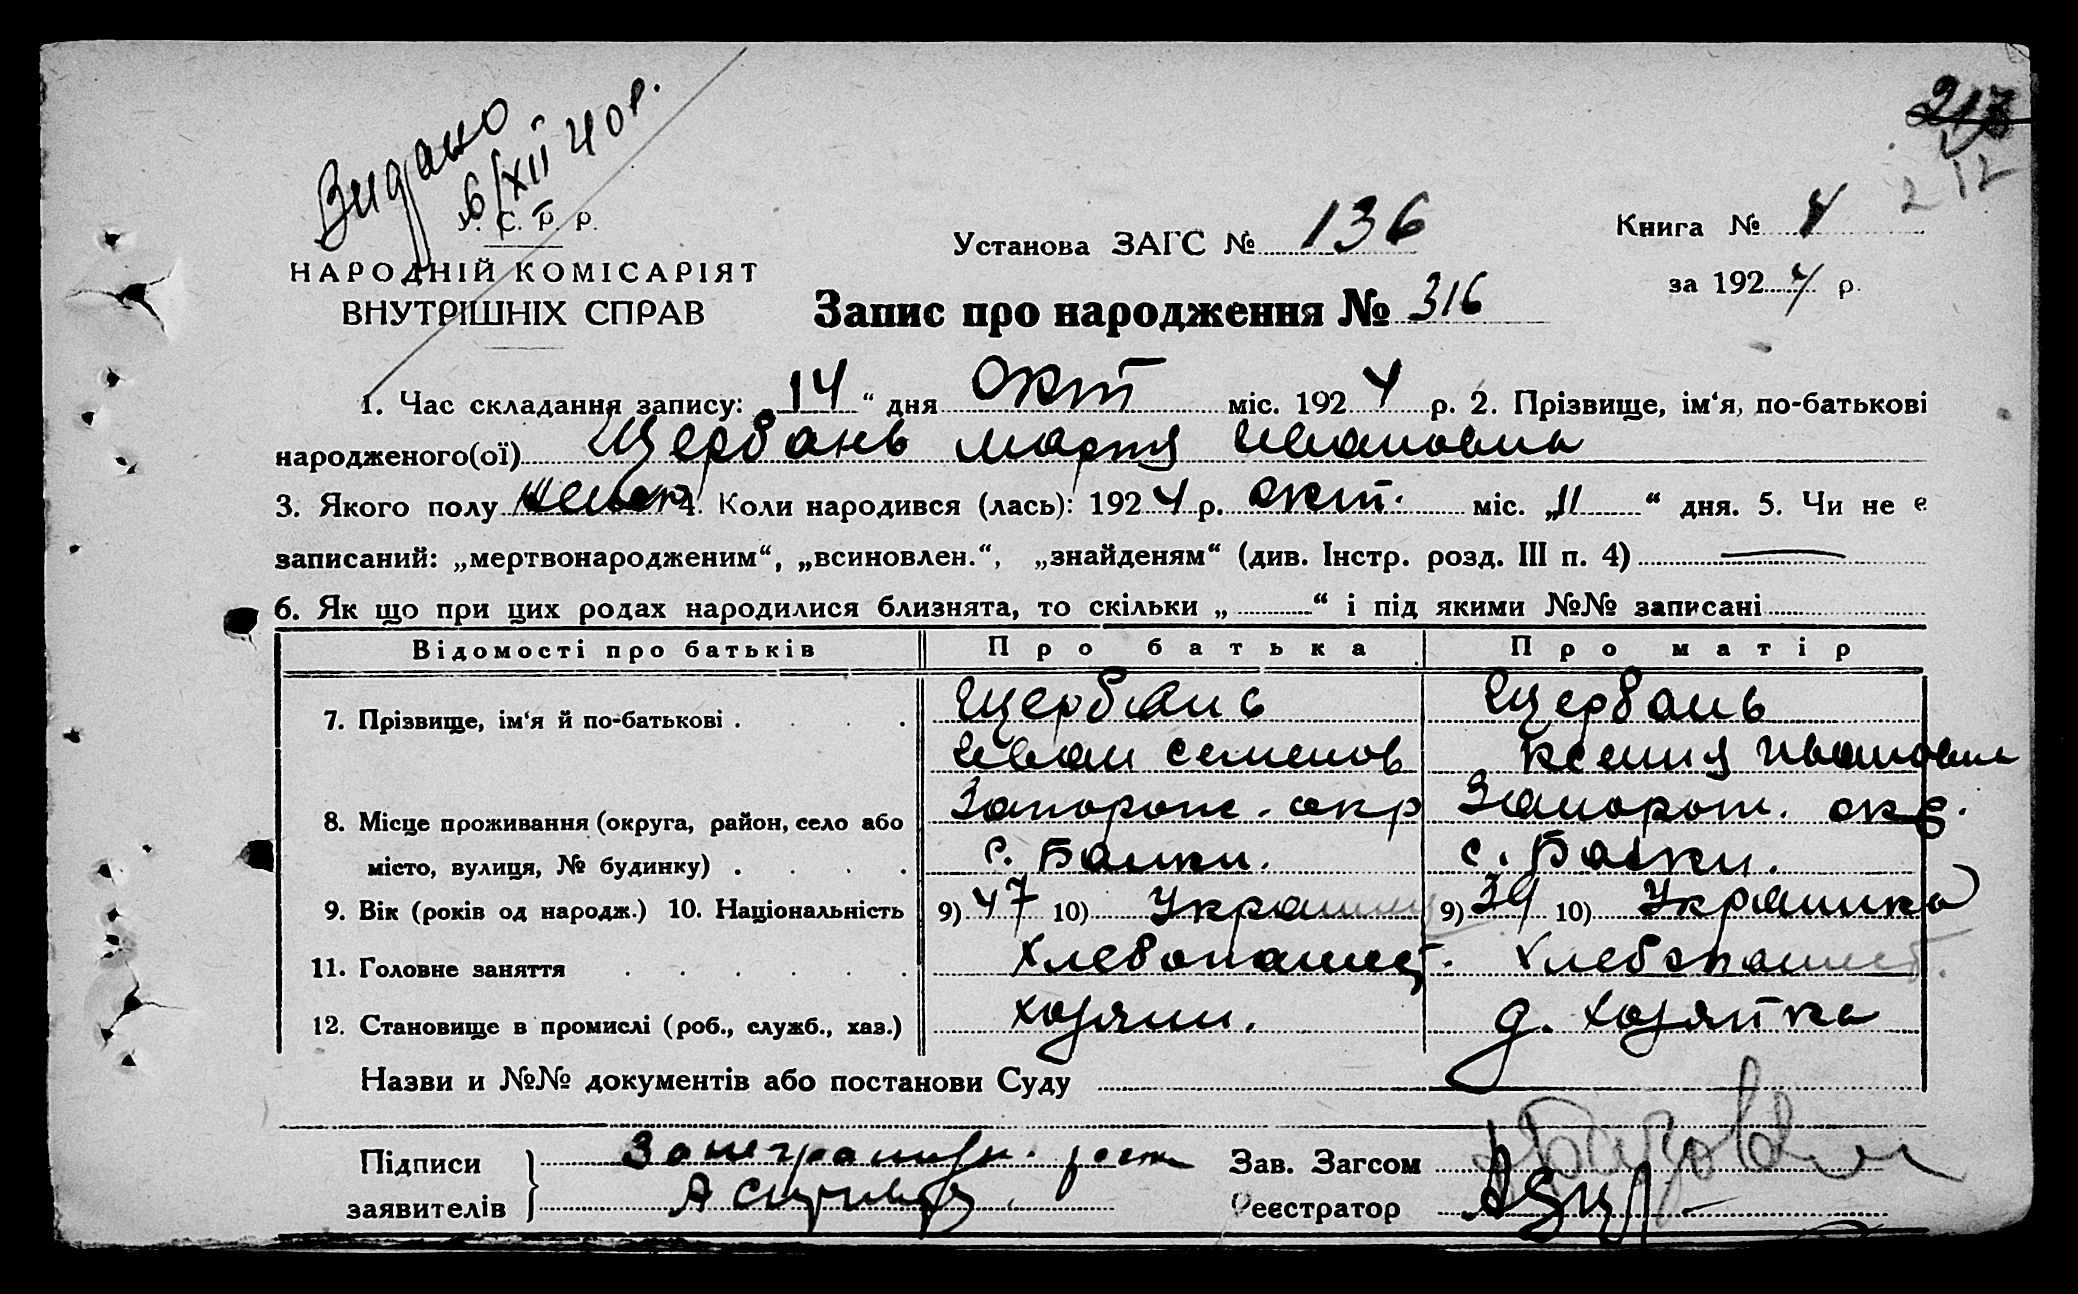 Видано
6/XII 40 р.
213
212
У. С. Р. Р.
НАРОДНІЙ КОМІСАРІЯТ
ВНУТРІШНІХ СПРАВ
Установа ЗАГС № 136
Книга № 4
за 1924 р.
Запис про народження № 316
1. Час складання запису: „14“ дня Окт міс. 1924 р. 2. Прізвище, ім‘я, по-батькові
народженого(ої) Щербань Марія Ивановна
3. Якого полу женск 4. Коли народився (лась): 1924 р. окт. міс. „11“ дня. 5. Чи не є
записаний: „мертвонародженим“, „всиновлен.“, „знайденям“ (див. Інстр. розд. III п. 4)
6. Як що при цих родах народилися близнята, то скільки „ “ і під якими №№ записані
Відомості про батьків Про батька Про матір
7. Прізвище, ім‘я й по-батькові . . . . Щербань Щербань
Иван Семенов Ксения Ивановна
8. Місце проживання (округа, район, село або Запорож. окр Запорож. окр.
місто, вулиця, № будинку) . . . . с. Балки. с. Балки.
9. Вік (років од народж.) 10. Національність 9) 47 10) Украинец 9) 39 10) Украинка
11. Головне заняття . . . . . . Хлебопашец. Хлебопашест.
12. Становище в промислі (роб., служб., хаз.) хозяин. д. хозяйка
Назви и №№ документів або постанови Суду
Підписи
заявителів
Зав. Загсом
Реєстратор